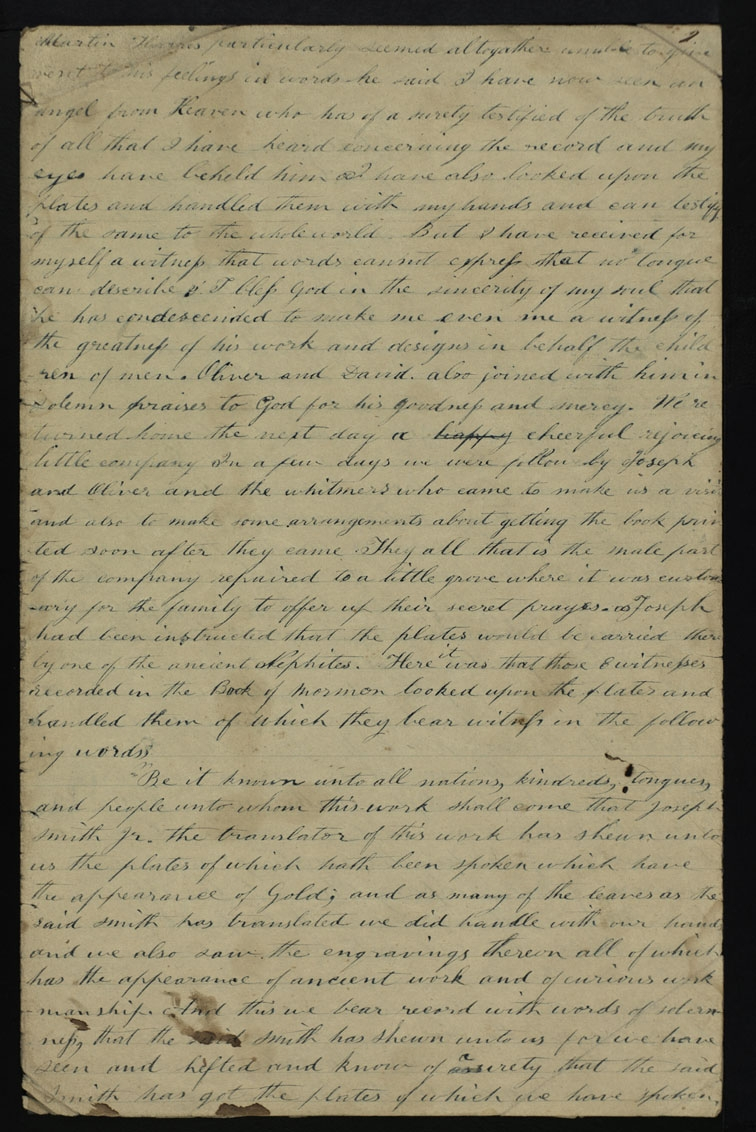 2
Martin Harris particularly seemed altogather unable to give
vent to his feelings in words he said I have now seen an
angel from Heaven who has of a surety testified of the truth
of all that I have heard concerning the record and my
eyes have beheld him & I have also looked upon the
plates and handled them with my hands and can testify
of the same to the whole world. But I have received for
myself a witness that words cannot express that no tongue
can describe & I bless God in the sincerity of my soul that
he has condescended to make me even me a witness of
the greatness of his work and designs in behalf the child
ren of men. Oliver and David. also joined with him in
solemn praises to God for his goodness and mercy. We re
turned home the next day a happy cheerful rejoicing
little company In a few days we were follow by Joseph
and Oliver and the whitmers who came to make us a visi
and also to make some arrangements about getting the book prin
ted soon after they came They all that is the male part
of the company repaired to a little grove where it was custom
-ary for the family to offer up their secret prayes. as Joseph
had been instructed that the plates would be carried there
by one of the ancient Nephites. Here it was that those 8 witnesses
recorded in the Book of Mormon looked upon the plates and
handled them of which they bear witness in the follow
ing words
"Be it known unto all nations, kindreds, tongues,
and people unto whom this work shall come that Joseph
Smith Jr. the translator of this work has shewn unto
us the plates of which hath been spoken which have
the appearance of Gold; and as many of the leaves as the
said Smith has translated we did handle with our hand
and we also saw the engravings thereon all of which
has the appearance of ancient work and of curious work
manship. And this we bear record with words of solem
ness, that the said Smith has shewn unto us for we have
seen and hefted and know of a surety that the said
Smith has got the plates of which we have spoken.